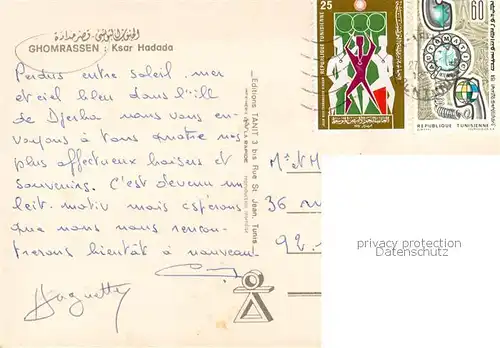 الجنوب التونسي - قصر حدادة
GHOMRASSEN : Ksar Hadada
Perdus entre soleil, mer
et ciel bleu dans l'île
de Djerba nous vous en-
voyons à vous quatre nos
plus affectueux baisers et
souvenirs. C'est devenu un
leit-motiv mais espérons
que nous nous rencon-
trerons bientôt à nouveau
Huguette
Editions TANIT 3 bis Rue St Jean. Tunis
25
REPUBLIQUE TUNISIENNE
60
AUTOMATIQUE
REPUBLIQUE TUNISIENNE
27
M. et M
36 r
92
privacy protection
Datenschutz